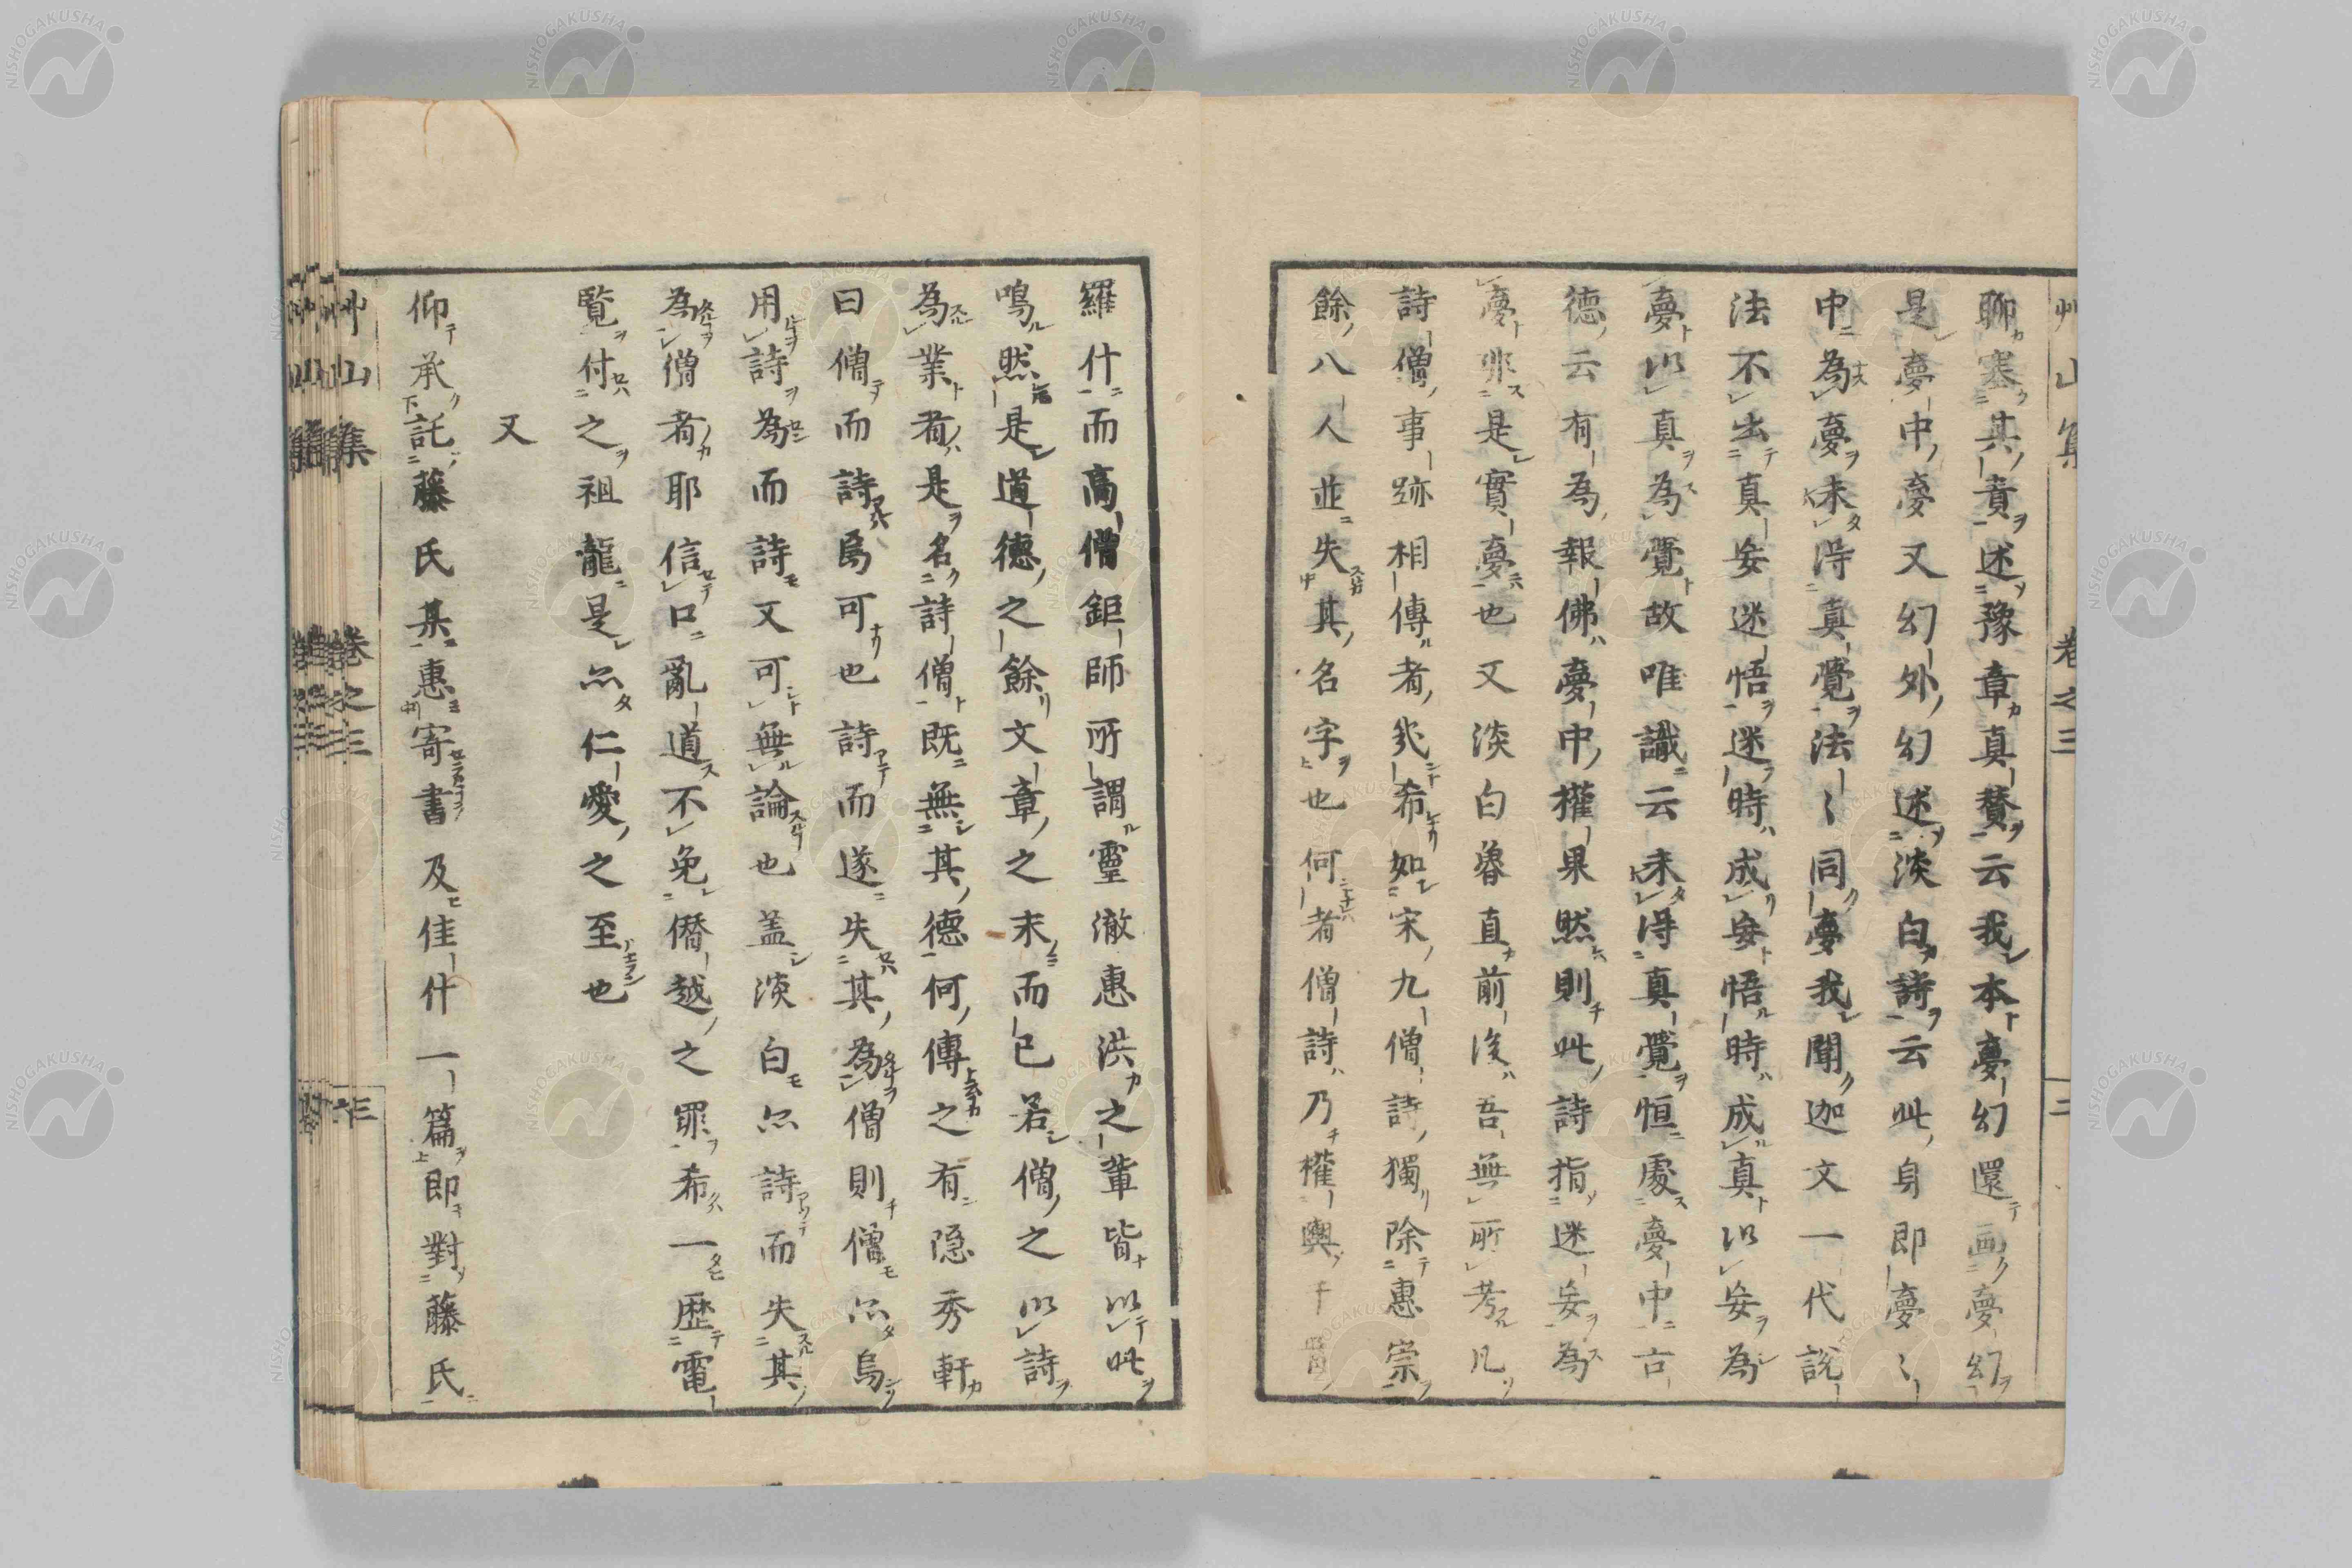 艸山集 卷之三
聊塞其責述豫章真賛云我本夢幻還画夢幻
是夢中夢又幻外幻述淡白詩云此身即夢〻
中為夢未淂真覺法〻同夢我聞迦文一代說
法不出真妄迷悟迷時成妄悟時成真以妄為
夢以真為覺故唯識云未淂真覺恒處夢中古
德云有為報佛夢中權果然則此詩指迷妄為
夢非是實夢也又淡白夐直前後吾無所考凡
詩僧事跡相傳者衆希如宋九僧詩獨除惠崇
餘八人並失其名字也何者僧詩乃權輿千
羅什而高僧鉅師所謂靈澈惠洪之輩皆以此
鳴然是道德之餘文章之末而已若僧之以詩
為業者是名詩僧既無其德何傳之有隐秀軒
曰僧而詩烏可也詩而遂失其為僧則僧亦烏
用詩為而詩又可無論也盖淡白亦詩而失其
為僧者耶信口亂道不免僭越之罪希一歴電
覧付之祖龍是亦仁愛之至也
又
仰承託藤氏某惠寄書及佳什一篇即對藤氏
艸山集 卷之三